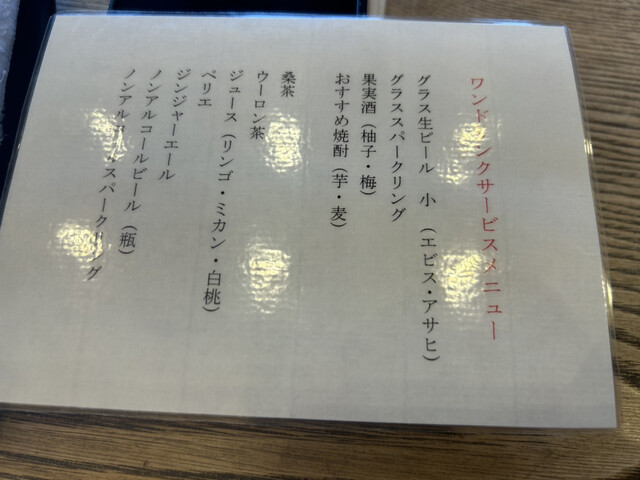 ワンドリンクサービスメニュー
グラス生ビール 小 (エビス・アサヒ)
グラススパークリング
果実酒 (柚子・梅)
おすすめ焼酎 (芋・麦)
桑茶
ウーロン茶
ジュース (リンゴ・ミカン・白桃)
ペリエ
ジンジャーエール
ノンアルコールビール (瓶)
ノンアルコールスパークリング